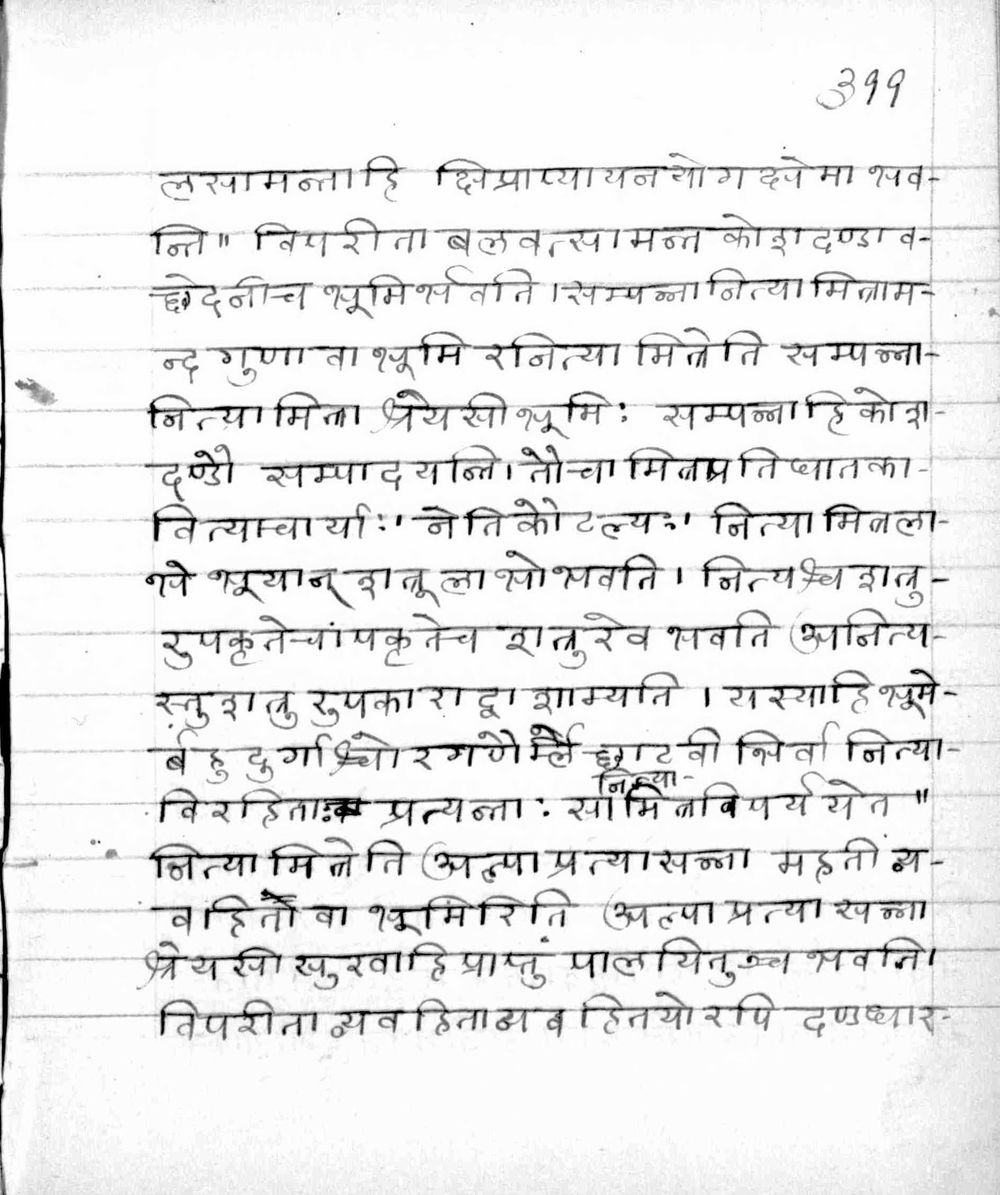 ३११
लसामन्ताहि क्षिप्राप्यायनयोगक्षेमा भव-
न्ति" विपरीता बलवत्सामन्त कोशदण्डाव-
छेदनीच भूमिर्भवति । सम्पन्नानित्यामित्राम-
न्दगुणा वा भूमि रनित्या मित्रेति सम्पन्ना-
नित्यामित्रा श्रेयसीभूमिः सम्पन्नाहिकोश-
दण्डौ सम्पादयन्ति । तौचामित्रप्रतिघातका-
वित्याचार्याः' नेतिकौटल्यः' नित्यामित्रला-
भे भूयान् शत्रूलाभोभवति । नित्यश्च शत्रु-
रुपकृतेचापकृतेच शत्रुरेव भवति अनित्य-
स्तु शत्रु रुपकाराद्वा शाम्यति । यस्याहि भूमे-
र्बहुदुर्गाश्चोरगणैर्म्लेछाटवीभिर्वा नित्या-
विरहिताः प्रत्यन्ताः सा नित्या-मित्रविपर्ययेत"
नित्यामित्रेति अल्पाप्रत्यासन्ना महतीव्य-
वहितौ वा भूमिरिति अल्पाप्रत्यासन्ना
श्रेयसी सुखाहि प्राप्तुं पालयितुञ्च भवति।
विपरीता व्यवहिताव्यवहितयोरपि दण्डधार-